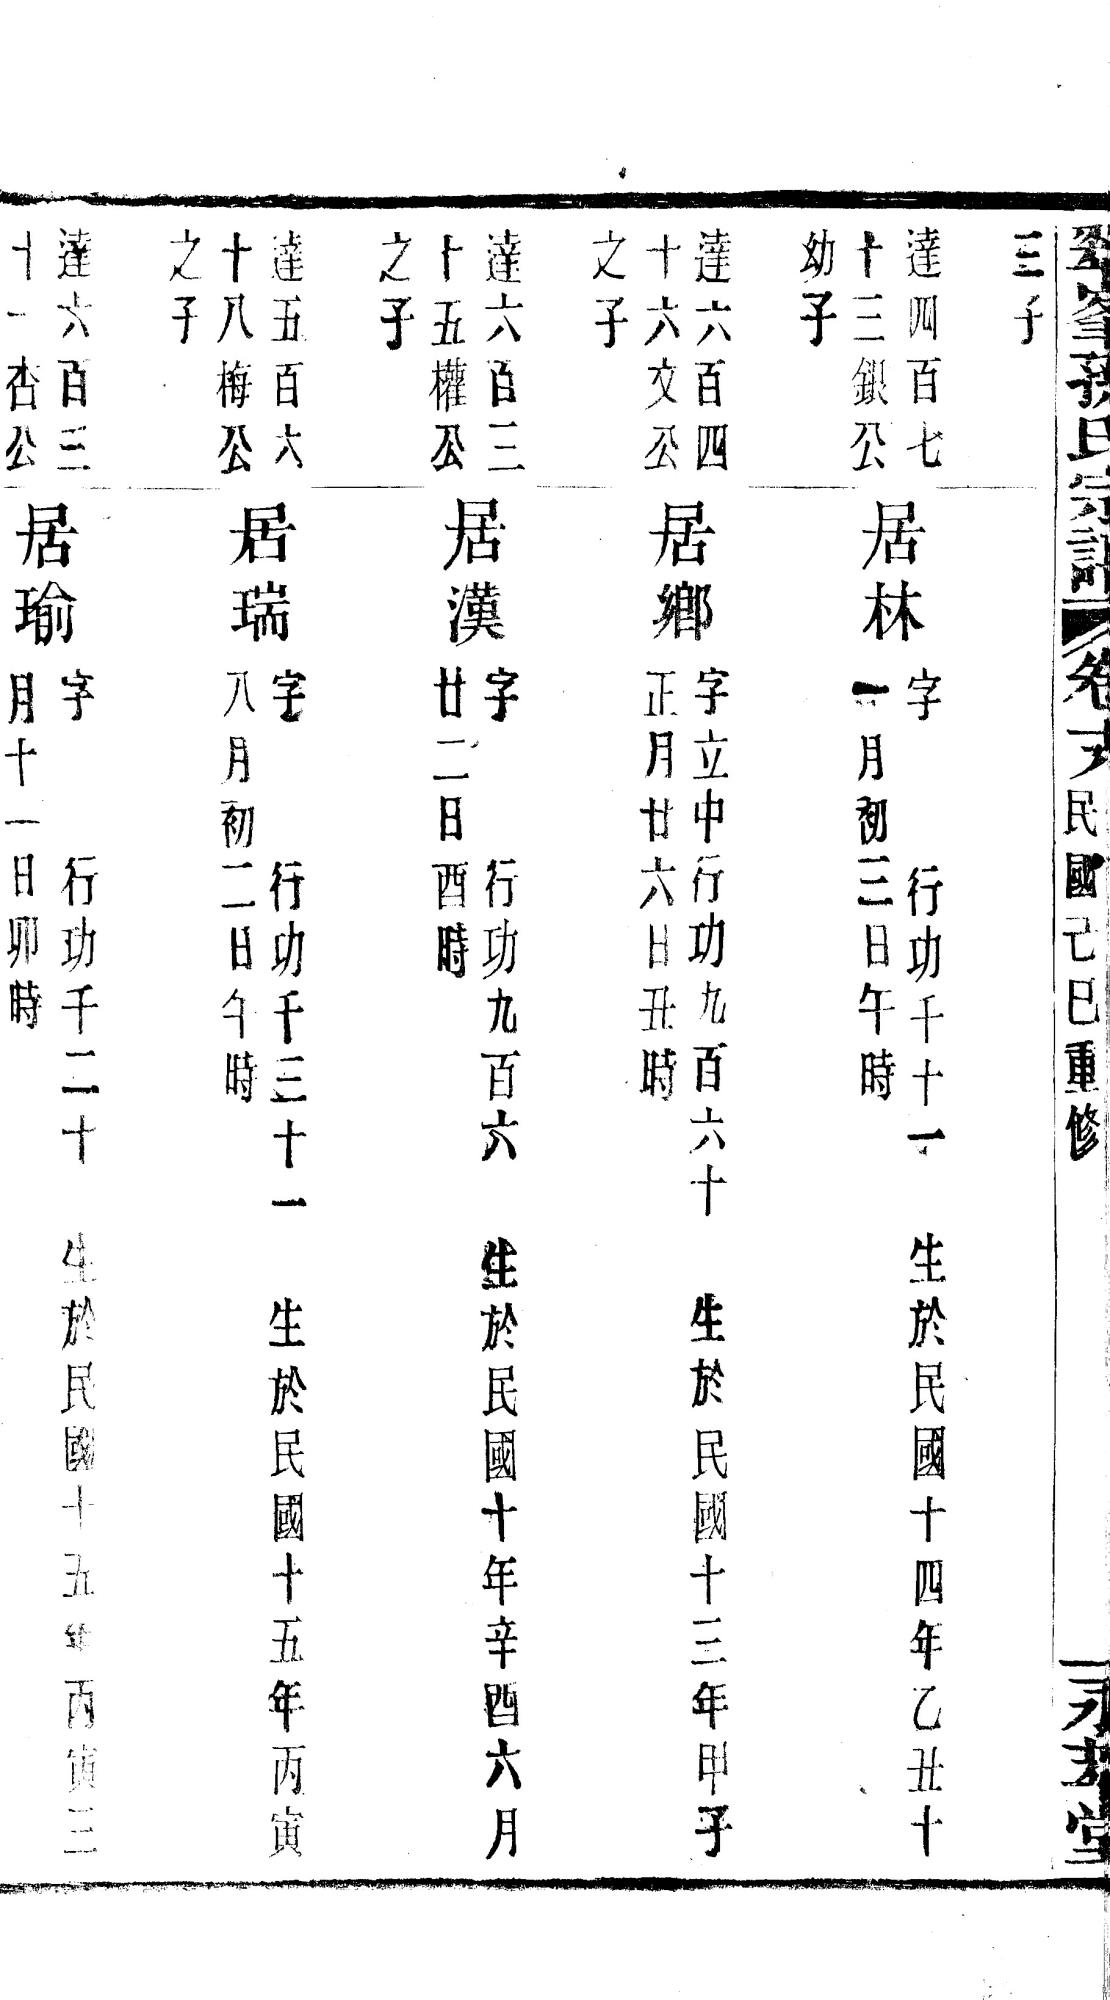 峯孫氏宗譜 卷 民國己巳重修 永 堂
三子
達四百七
十三銀公
幼子
居林
字 行功千十一 生於民國十四年乙丑十
一月初三日午時
達六百四
十六文公
之子
居鄉
字立中行功九百六十 生於民國十三年甲子
正月廿六日丑時
達六百三
十五權公
之子
居漢
字 行功九百六 生於民國十年辛酉六月
廿二日酉時
達五百六
十八梅公
之子
居瑞
字 行功千三十一 生於民國十五年丙寅
八月初二日午時
達六百三
十一杏公
居瑜
字 行功千二十 生於民國十五年丙寅三
月十一日卯時